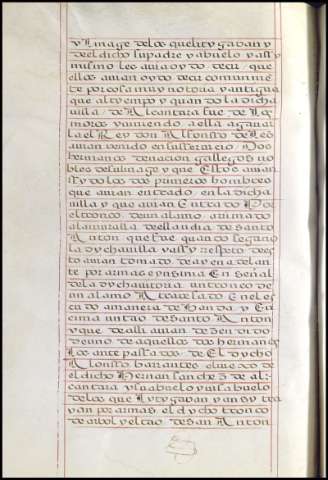 y linage delos que lityγaban y
del dicho su padre y abuelo y assy
mismo les auia oydo decir que
ellos auian oydo decir comunmẽ
te por cosa muy notoria y antigua
que al tyempo y quando la dicha
uilla de Alcantara fue de los
moros uiniendo a ella a ganar
la el Rey don Alfonso de leõ
auian uenido en su seruicio Dos
hermanos de nacion gallegos no
bles de linage y que Estos auian
sydo los dos primeros hombres
que auian entrado en la dicha
uilla y que auian Entrado Por
el tronco de un alamo arimado
a la muralla de ella dia de santo
Anton que fue quando se gano
la dycha uilla y su respeto de es
to auian tomado de ay en adelan
te por armas e ynsinia En señal
de la dycha uitoria un tronco de
un alamo Atrauesado En el es
cudo a manera de banda y En
cima un tao de santo Anton
y que de alli auian decendido
de uno de aquellos dos hermanos
los ante passados de El dycho
Alonsso barrantes el uieco de
el dicho Hernan sanches de al
cantara y su abuelo y uisabuelo
de los que lityγaban y ansy tra
yan por armas el dycho tronco
de arbol y el tao de san Anton